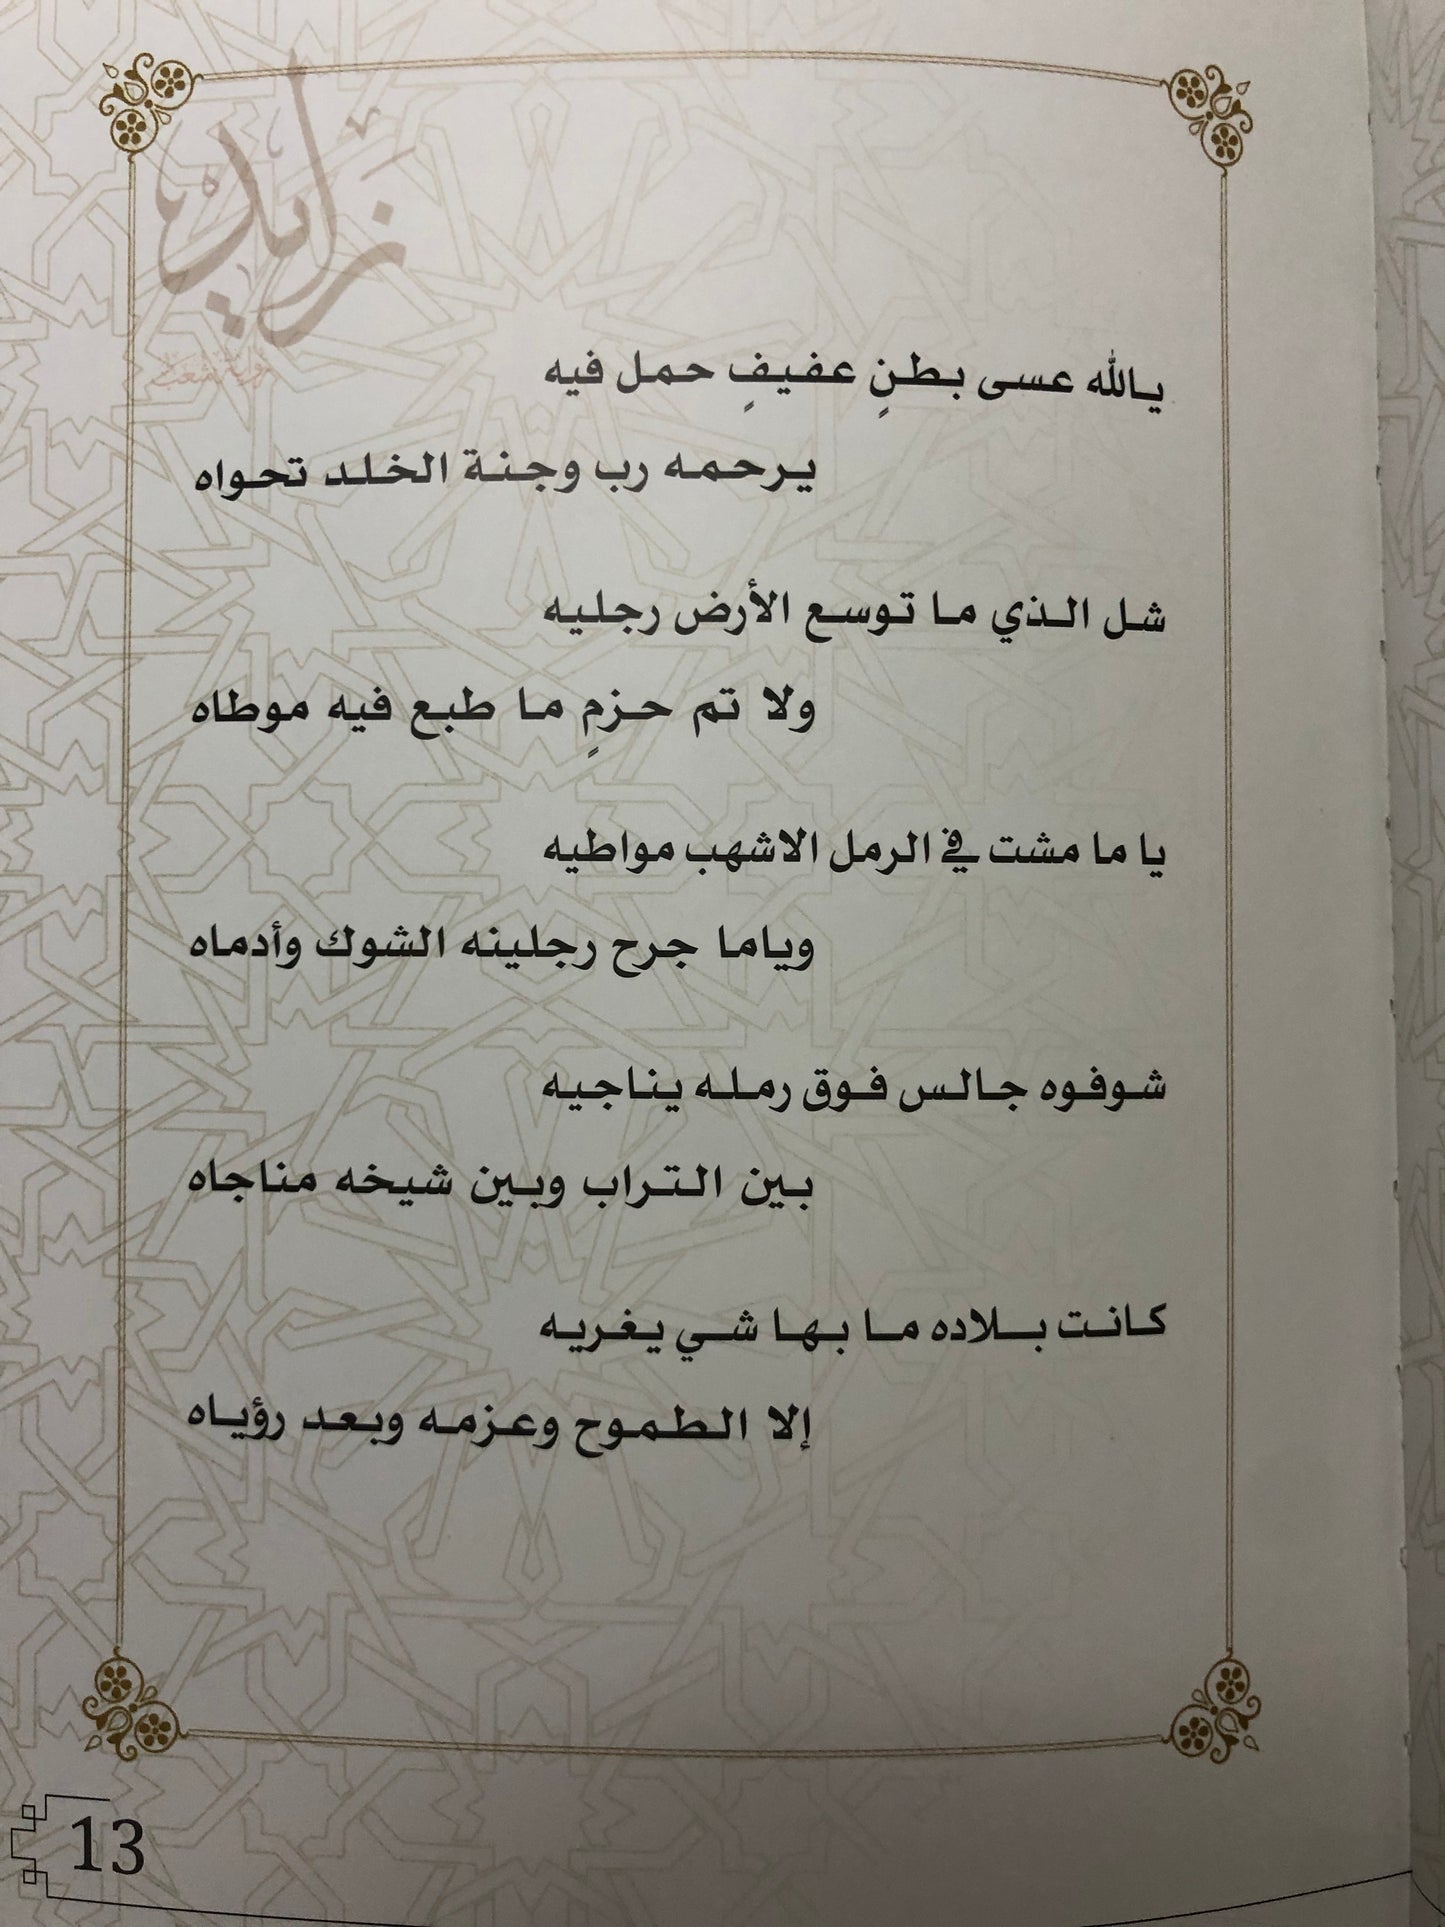 زايد
يالله عسى بطنٍ عفيفٍ حمل فيه
يرحمه رب وجنة الخلد تحواه
شل الذي ما توسع الأرض رجليه
ولا تم حزمٍ ما طبع فيه موطاه
يا ما مشت في الرمل الاشهب مواطيه
وياما جرح رجلينه الشوك وأدماه
شوفوه جالس فوق رمله يناجيه
بين التراب وبين شيخه مناجاه
كانت بلاده ما بها شي يغريه
إلا الطموح وعزمه وبعد رؤياه
13